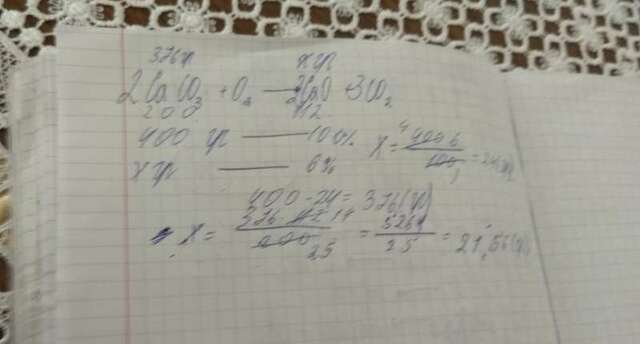 376 гр x гр
2CaCO3 + O2 → 2CaO + 3CO2
200 112
400 гр — 100%
x гр — 6%
x = 400·6 / 100 = 24(гр)
400-24 = 376(гр)
x = 376· 14 / 25 = 5264 / 25 = 21,56(г)